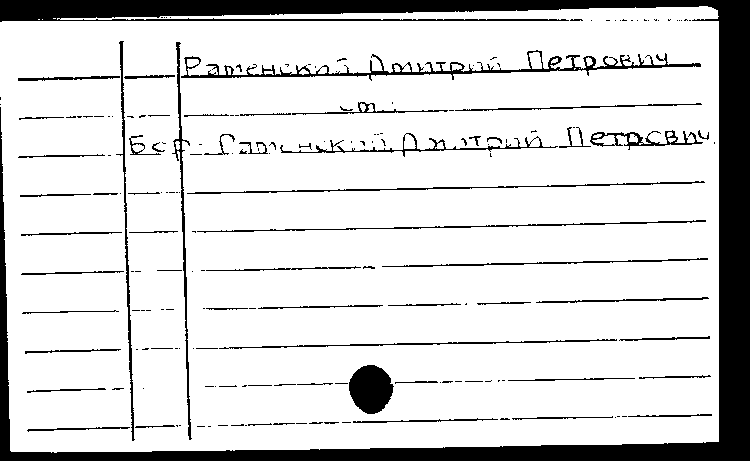 Ратенский Дмитрий Петрович
см:
Бер- Ратенский Дмитрий Петрович